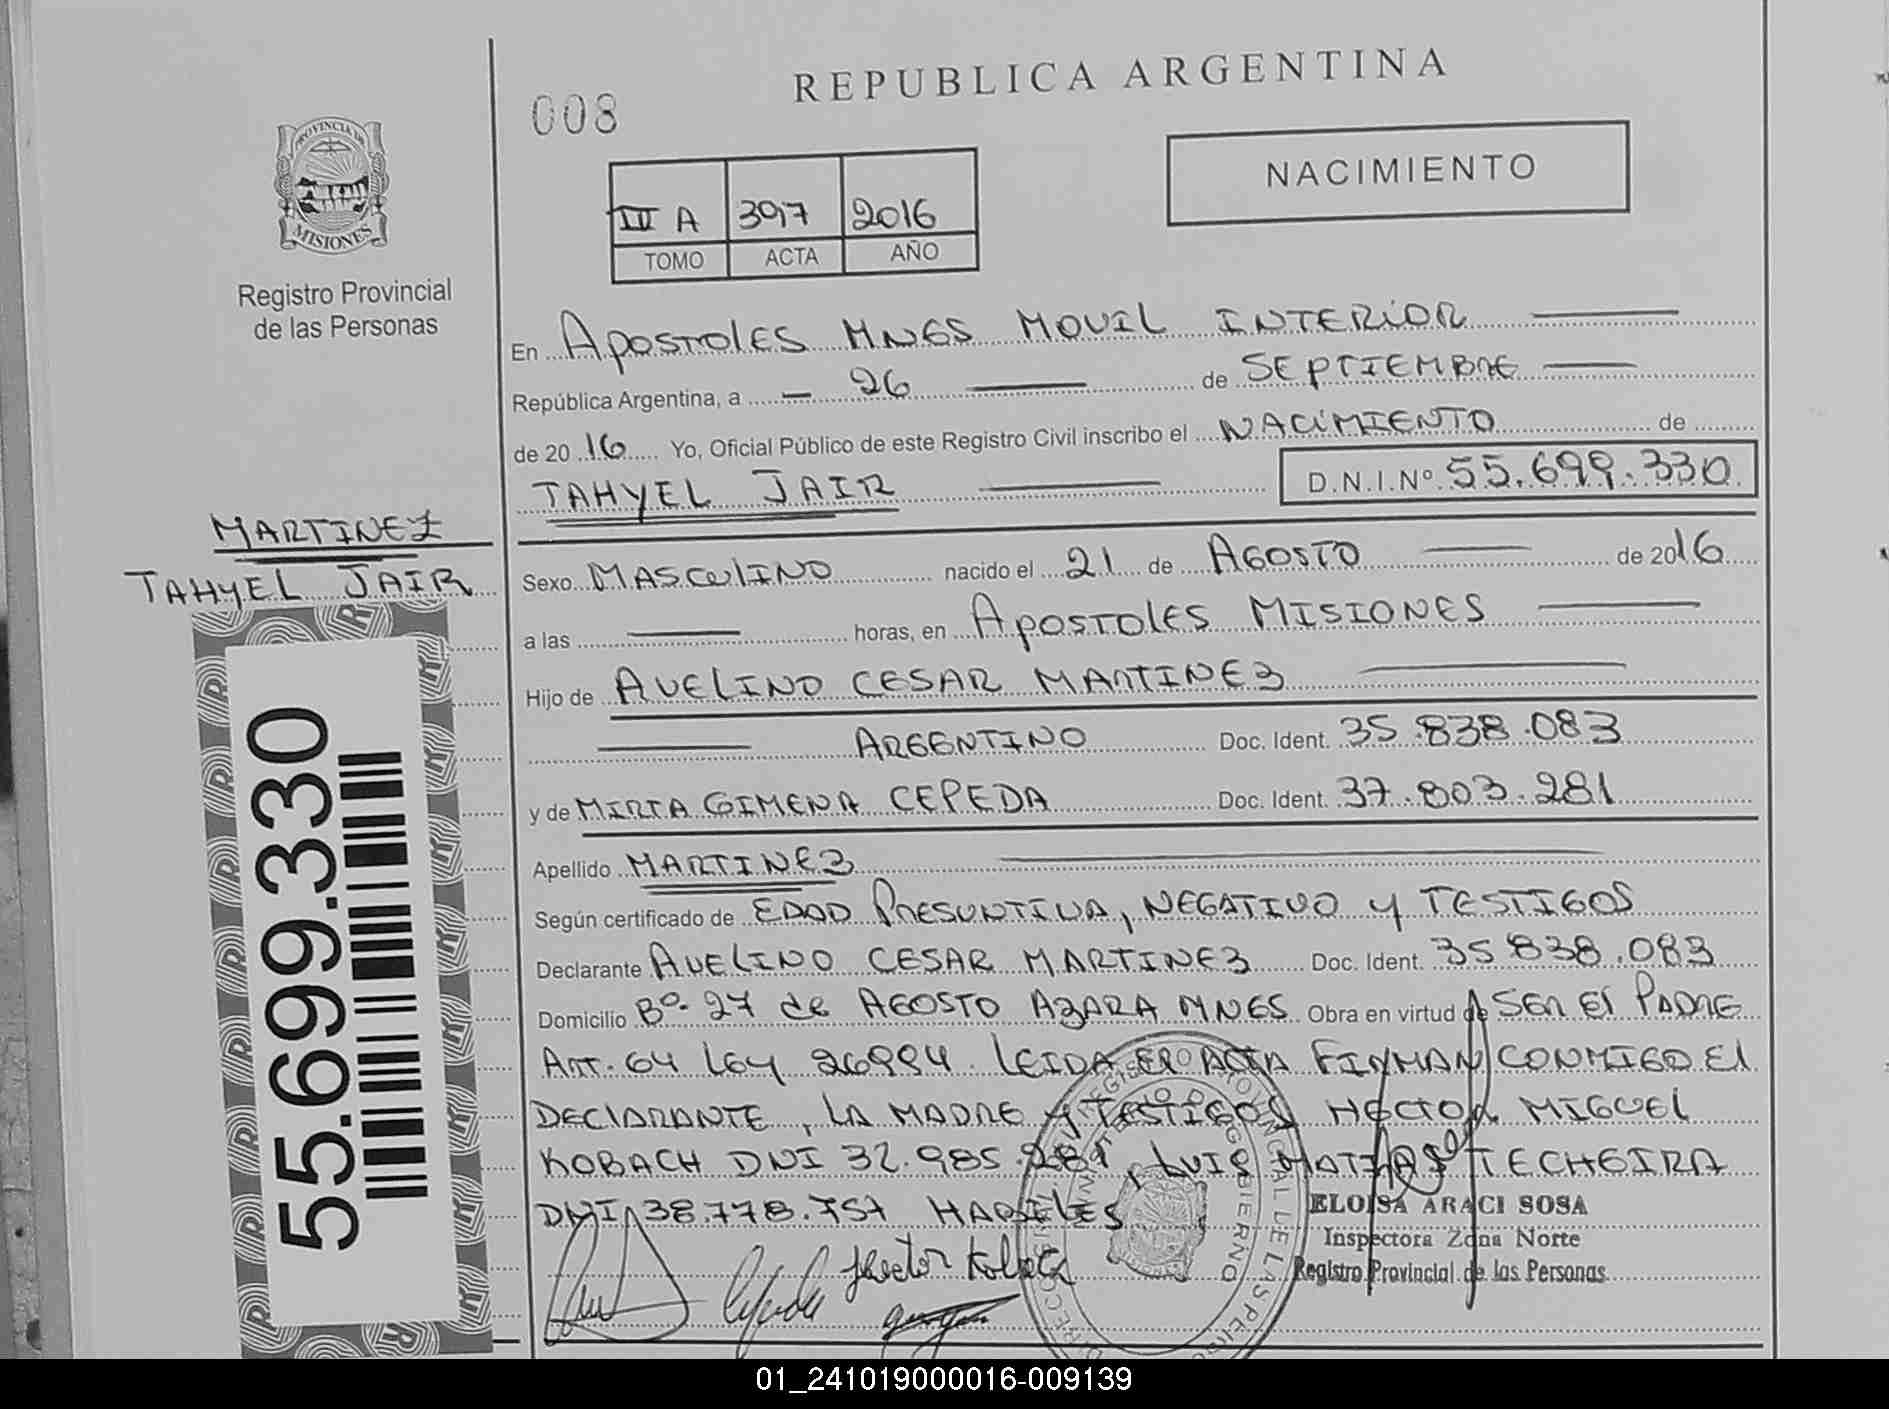 REPUBLICA ARGENTINA
008
NACIMIENTO
PROVINCIA DE
MISIONES
Registro Provincial
de las Personas
III A 397 2016
TOMO ACTA AÑO
En APOSTOLES MNES MOVIL INTERIOR
República Argentina, a 26 de SEPTIEMBRE
de 2016 Yo, Oficial Público de este Registro Civil inscribo el NACIMIENTO de
TAHYEL JAIR D.N.I.Nº 55.699.330
MARTINEZ
TAHYEL JAIR
55.699.330
Sexo MASCULINO nacido el 21 de AGOSTO de 2016
a las horas, en APOSTOLES MISIONES
Hijo de AVELINO CESAR MARTINEZ
ARGENTINO Doc. Ident. 35.838.083
y de MIRTA GIMENA CEPEDA Doc. Ident. 37.803.281
Apellido MARTINEZ
Según certificado de EDAD PRESUNTIVA, NEGATIVO y TESTIGOS
Declarante AVELINO CESAR MARTINEZ Doc. Ident. 35838.083
Domicilio Bº 27 de AGOSTO AZARA MNES Obra en virtud de SER El PADRE
ART. 64 LEY 26994. LEIDA ACTA FIRMAN CONMIGO El
DECLARANTE, LA MADRE y TESTIGOS HECTOR MIGUEL
KOBACH DNI 32.985.281, LUIS MATIAS TECHEIRA
DNI 38.778.757 HABILES
Hector Kobach
ELOISA ARACI SOSA
Inspectora Zona Norte
Registro Provincial de las Personas
01_241019000016-009139